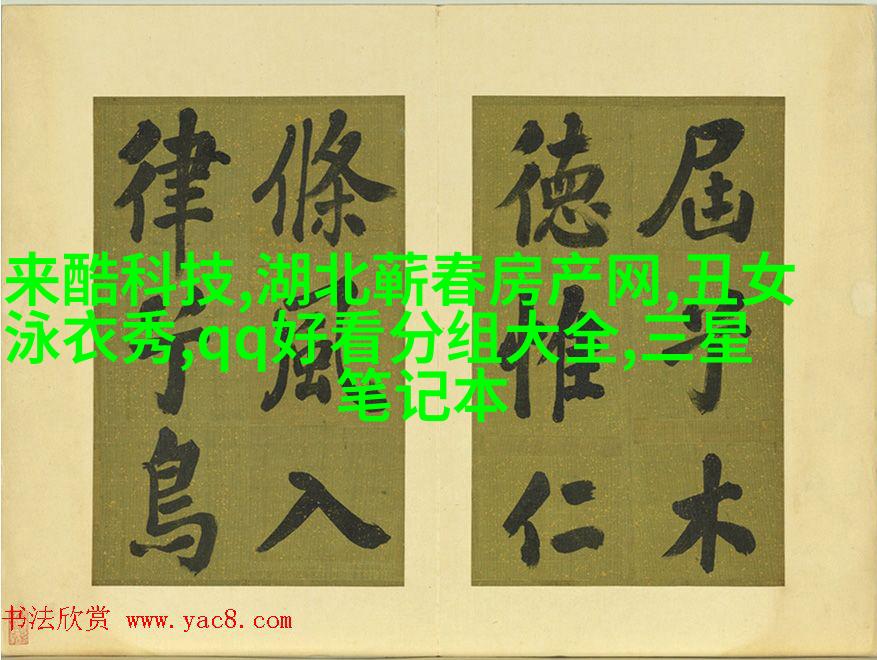 来酷科技,湖北蕲春房产网,丑女
泳衣秀,qq好看分组大全,三星
笔记本
屆木
德惟仁
條風入
律鳥
书法欣赏 www.yac8.com